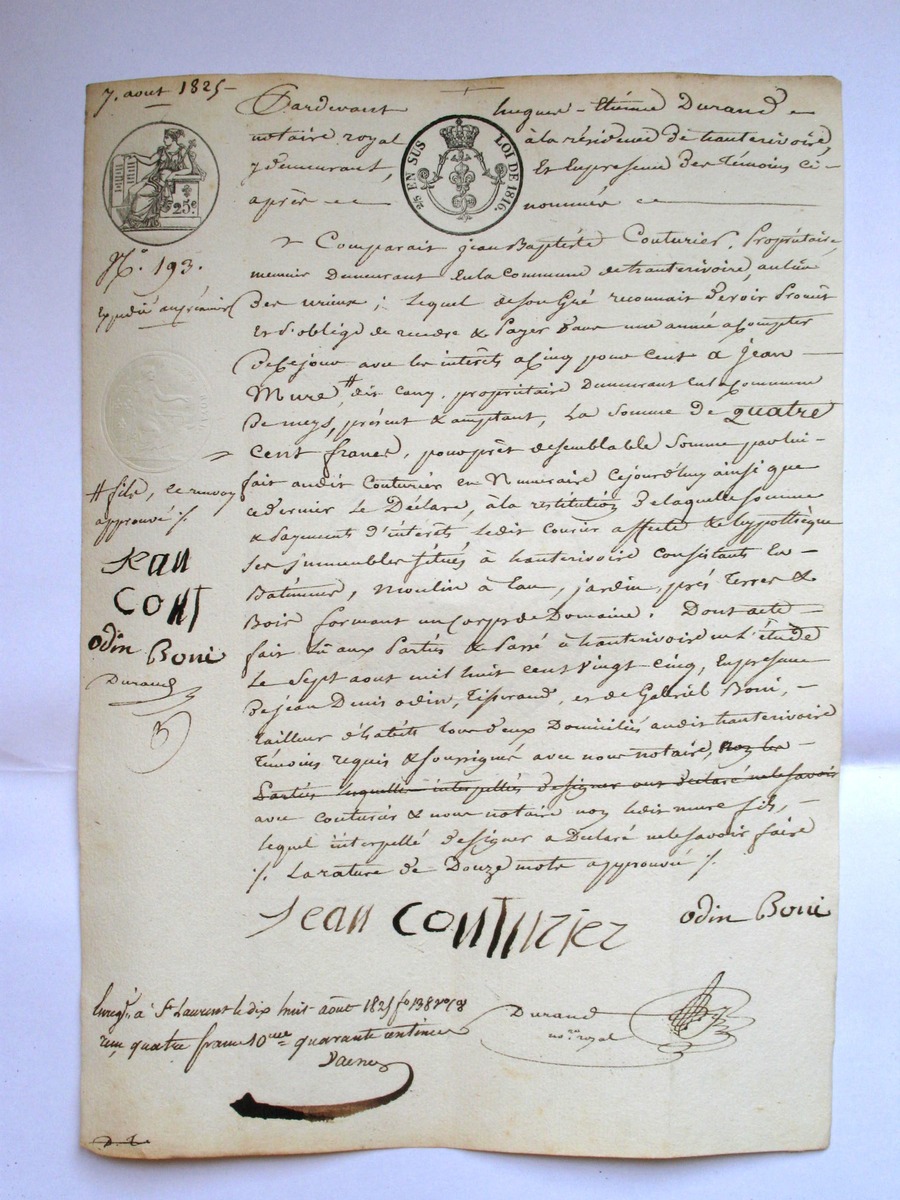 7. aout 1825
Pardevant hugues-Etienne Durand
notaire royal à la résidence de hauterivoire,
y demeurant, Et En presence Des Témoins ci-
après nommés
25 EN SUS LOI DE 1816.
25c
N.º 193.
Expédié au créancier
Comparait jean Baptiste Couturier, Propriétaire,
meunier Demeurant En la commune de hauterivoire, au lieu
Des vrieux; lequel de son Gré reconnait Devoir Promet
Et s'oblige de rendre & Payer Dans une année a Compter
De Ce jour avec les intérêts a Cinq pour Cent a Jean
Mure # dit Cany, propriétaire Demeurant En la Commune
De meys, présent & acceptant, La Somme De quatre
Cent francs, pour prêt de semblable Somme par lui
fait audit Couturier en Numéraire Cejourd'huy ainsi que
ce dernier le Déclare, à la restitution De laquelle somme
& Payements d'intérêts ledit Couturier affecte & hypothèque
Ses immeubles situés à hauterivoire Consistants En
Batiments, Moulin à Eau, jardin, prés Terres &
Bois formant un Corps de Domaine; Dont acte
fait lû aux Parties & Passé à hauterivoire En l'étude
Le Sept aout mil huit Cent Vingt Cinq, En présence
De jean Denis odin, Tisserand, et de Gabriel Boni,
Tailleur d'habits tous deux Domiciliés audit hauterivoire
Témoins requis & soussignés avec nous notaire, Non les
Parties lesquelles interpellées de signer ont déclaré ne le savoir
avec Couturier & nous notaire non ledit mure fils,
lequel interpellé De signer a Déclaré ne le savoir faire
/. La rature de Douze mots approuvée /.
# fils, le renvoy
approuvé /.
Jean
COUT
odin Boni
Durand
Jean COUTURIER
odin Boni
Durand
no.re royal
Enreg.é à St Laurent le dix huit août 1825 fº 138 vº
reçu quatre francs 10me quarante centimes